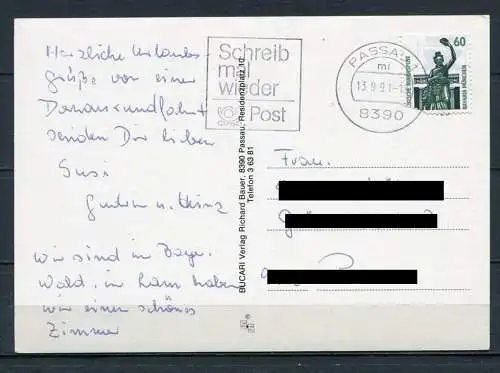 Herzliche Urlaubs-
grüße von einer
Donaurundfahrt
senden Dir lieben
Susi
u. Heinz
wir sind im Bayr.
Wald, in Ham haben
wir einen schönes
Zimmer
Schreib
mal
wieder
Post
PASSAU
mi
13.9.91
8390
60
BUCARI Verlag Richard Bauer, 8390 Passau, Residenzplatz 10
Telefon 3 63 81
Frau